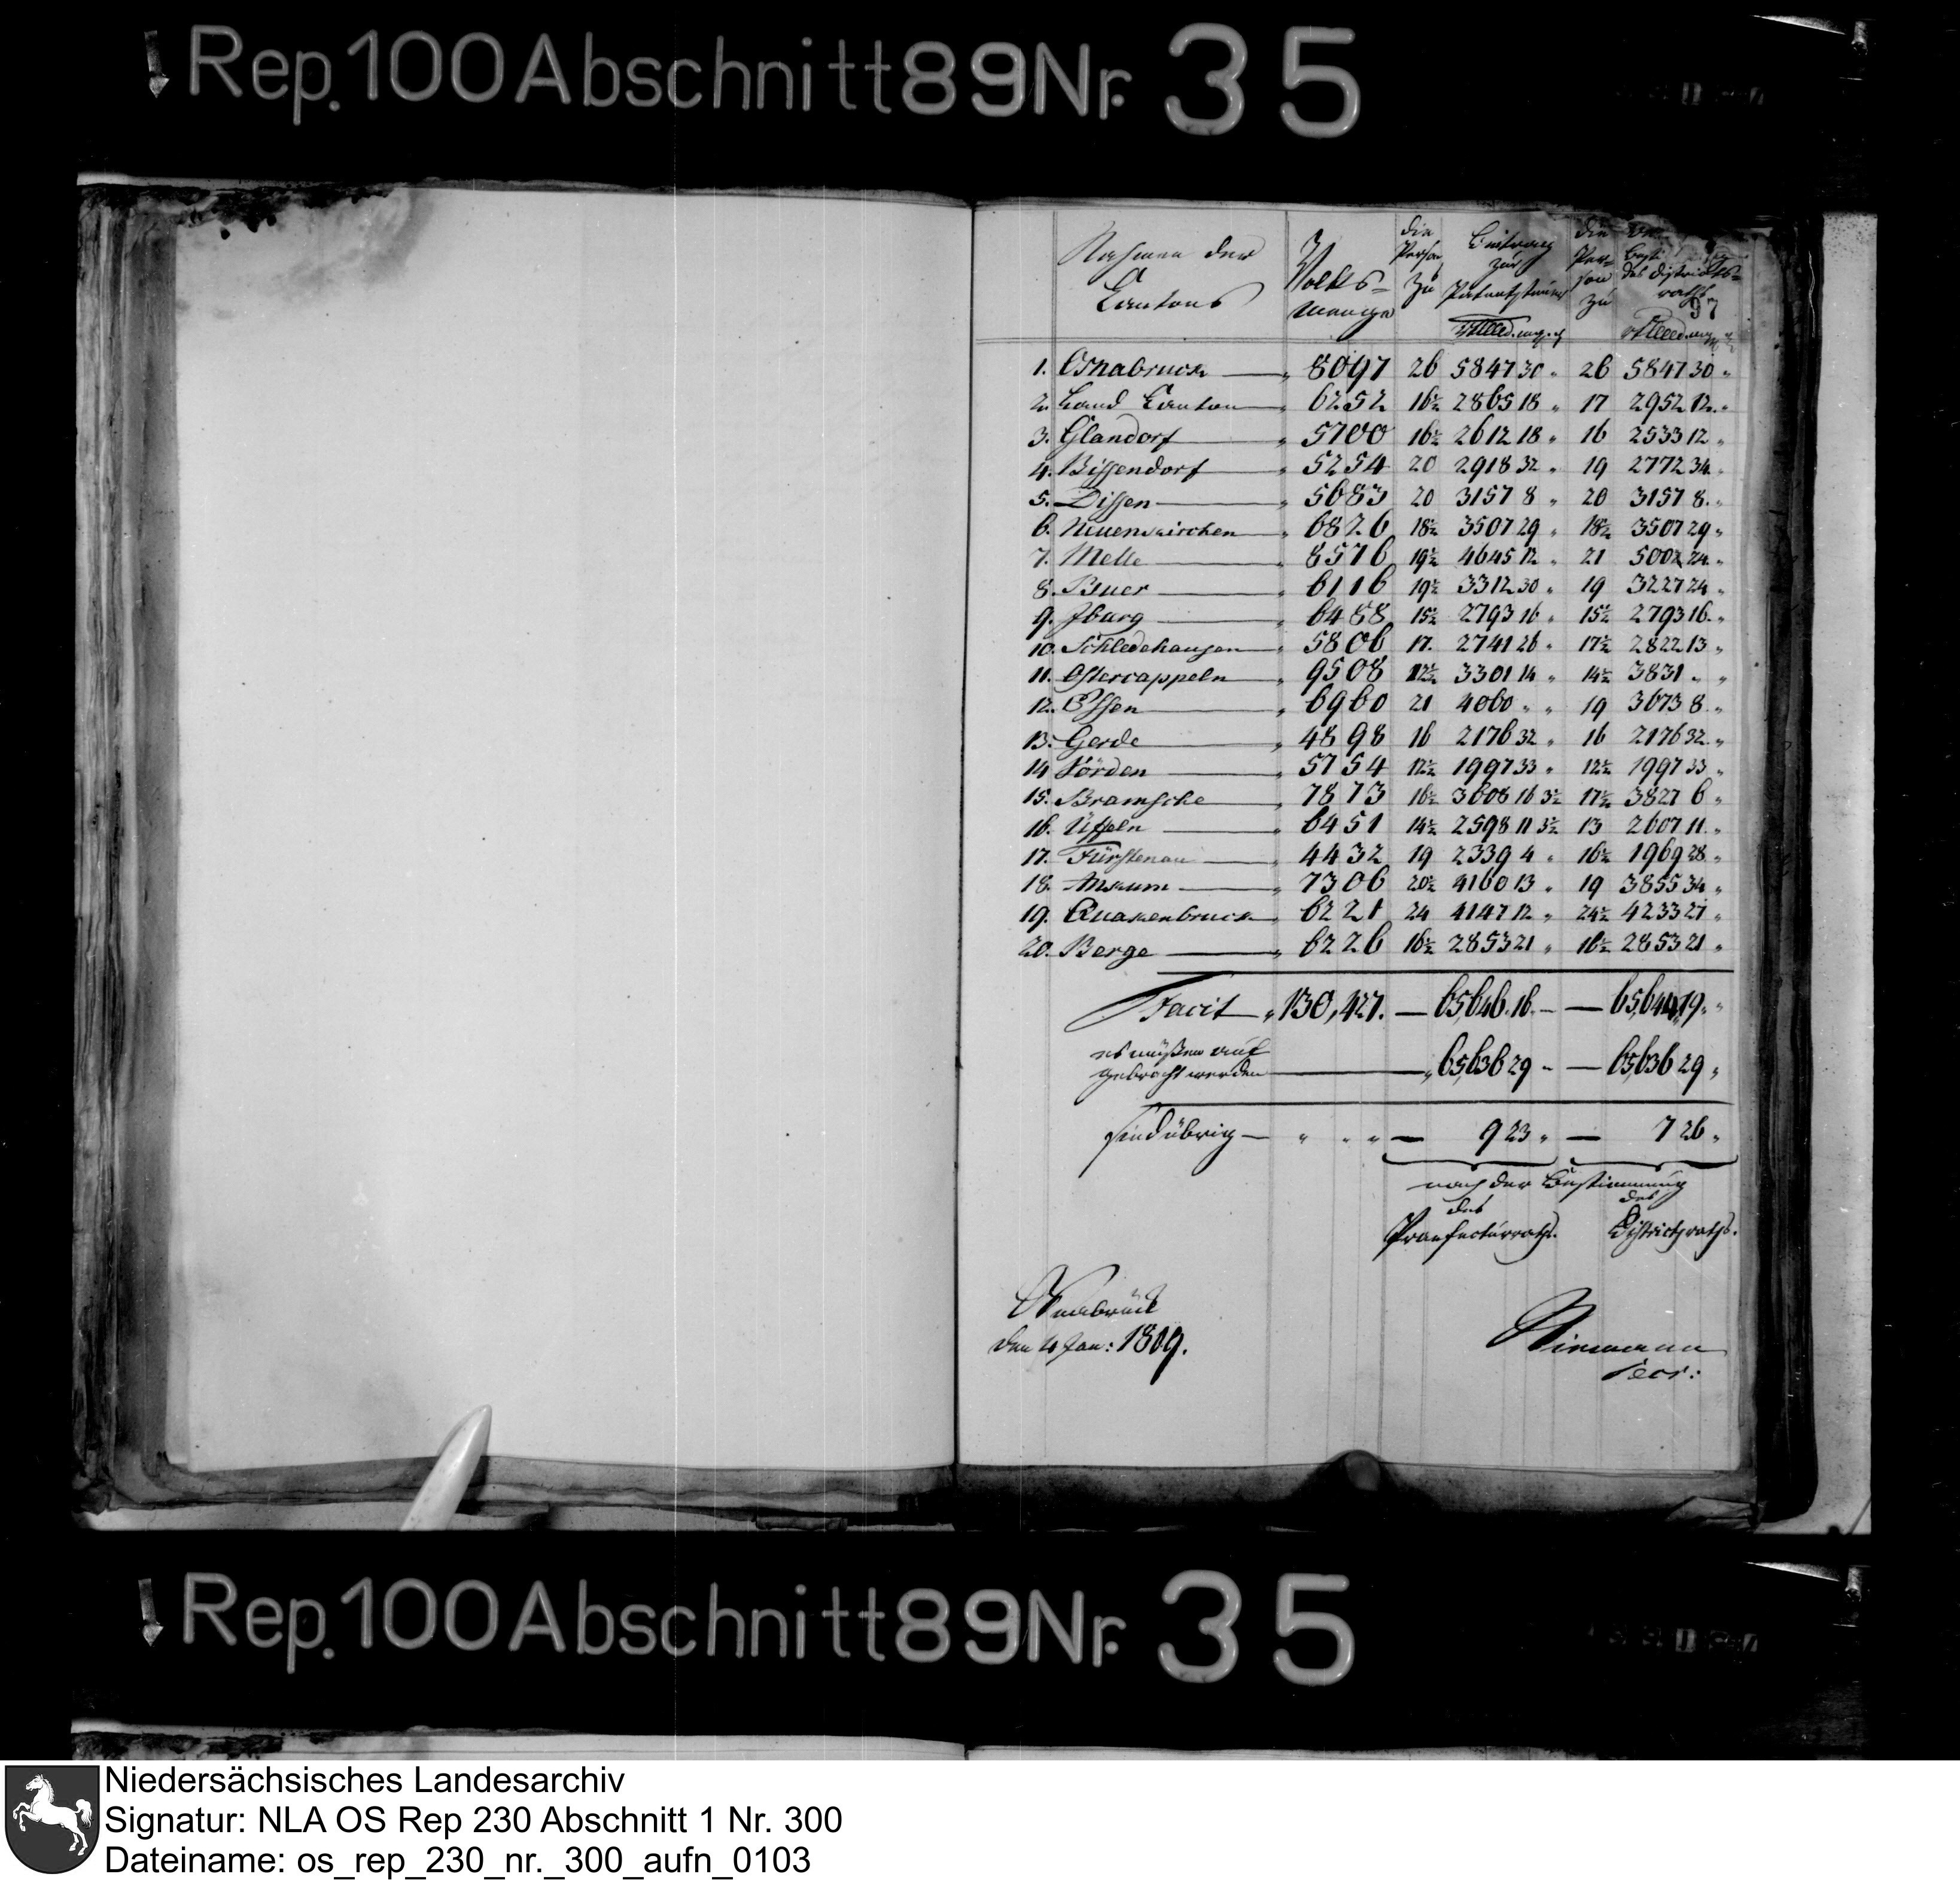 Rep.100 Abschnitt 89 Nr. 35
Nahmen der Cantons
Volks-menge
die Person zu
Beitrag zur Patentsteuer
die Person zu
des Districts-raths
97
1. Osnabruck „ 8097 26 5847 30 „ 26 5847 30 „
2. Land Canton „ 6252 16½ 2865 18 „ 17 2952 12 „
3. Glandorf „ 5700 16½ 2612 18 „ 16 2533 12 „
4. Bissendorf „ 5254 20 2918 32 „ 19 2772 34 „
5. Dissen „ 5683 20 3157 8 „ 20 3157 8 „
6. Neuenkirchen „ 6826 18½ 3507 29 „ 18½ 3507 29 „
7. Melle „ 8576 19½ 4645 12 „ 21 5002 24 „
8. Buer „ 6116 19½ 3312 30 „ 19 3227 24 „
9. Iburg „ 6488 15½ 2793 16 „ 15½ 2793 16 „
10. Schledehausen „ 5806 17. 2741 26 „ 17½ 2822 13 „
11. Ostercappeln „ 9508 12½ 3301 14 „ 14½ 3831 „ „
12. Essen „ 6960 21 4060 „ „ 19 3673 8 „
13. Gerde „ 4898 16 2176 32 „ 16 2176 32 „
14 Vörden „ 5754 12½ 1997 33 „ 12½ 1997 33 „
15. Bramsche „ 7873 16½ 3608 16 3½ 17½ 3827 6 „
16. Üffeln „ 6451 14½ 2598 11 3½ 13 2607 11 „
17. Fürstenau „ 4432 19 2339 4 „ 16½ 1969 28 „
18. Ankum „ 7306 20½ 4160 13 „ 19 3855 34 „
19. Quakenbruck „ 6221 24 4147 12 „ 24½ 4233 27 „
20. Berge „ 6226 16½ 2853 21 „ 16½ 2853 21 „
Facit „ 130,427. — 65,646. 16. – — 65,644 19 „
es müßen auf
gebracht werden — „ 65,636 29 – — 65,636 29 „
sind übrig — „ „ „ — 9 23 „ — 7 26 „
nach der Bestimmung
des Praefecturraths.
des Districtsraths.
Osnabrück
den 4 Jan: 1809.
Niemann
Secr:
Rep.100 Abschnitt 89 Nr. 35
Niedersächsisches Landesarchiv
Signatur: NLA OS Rep 230 Abschnitt 1 Nr. 300
Dateiname: os_rep_230_nr._300_aufn_0103